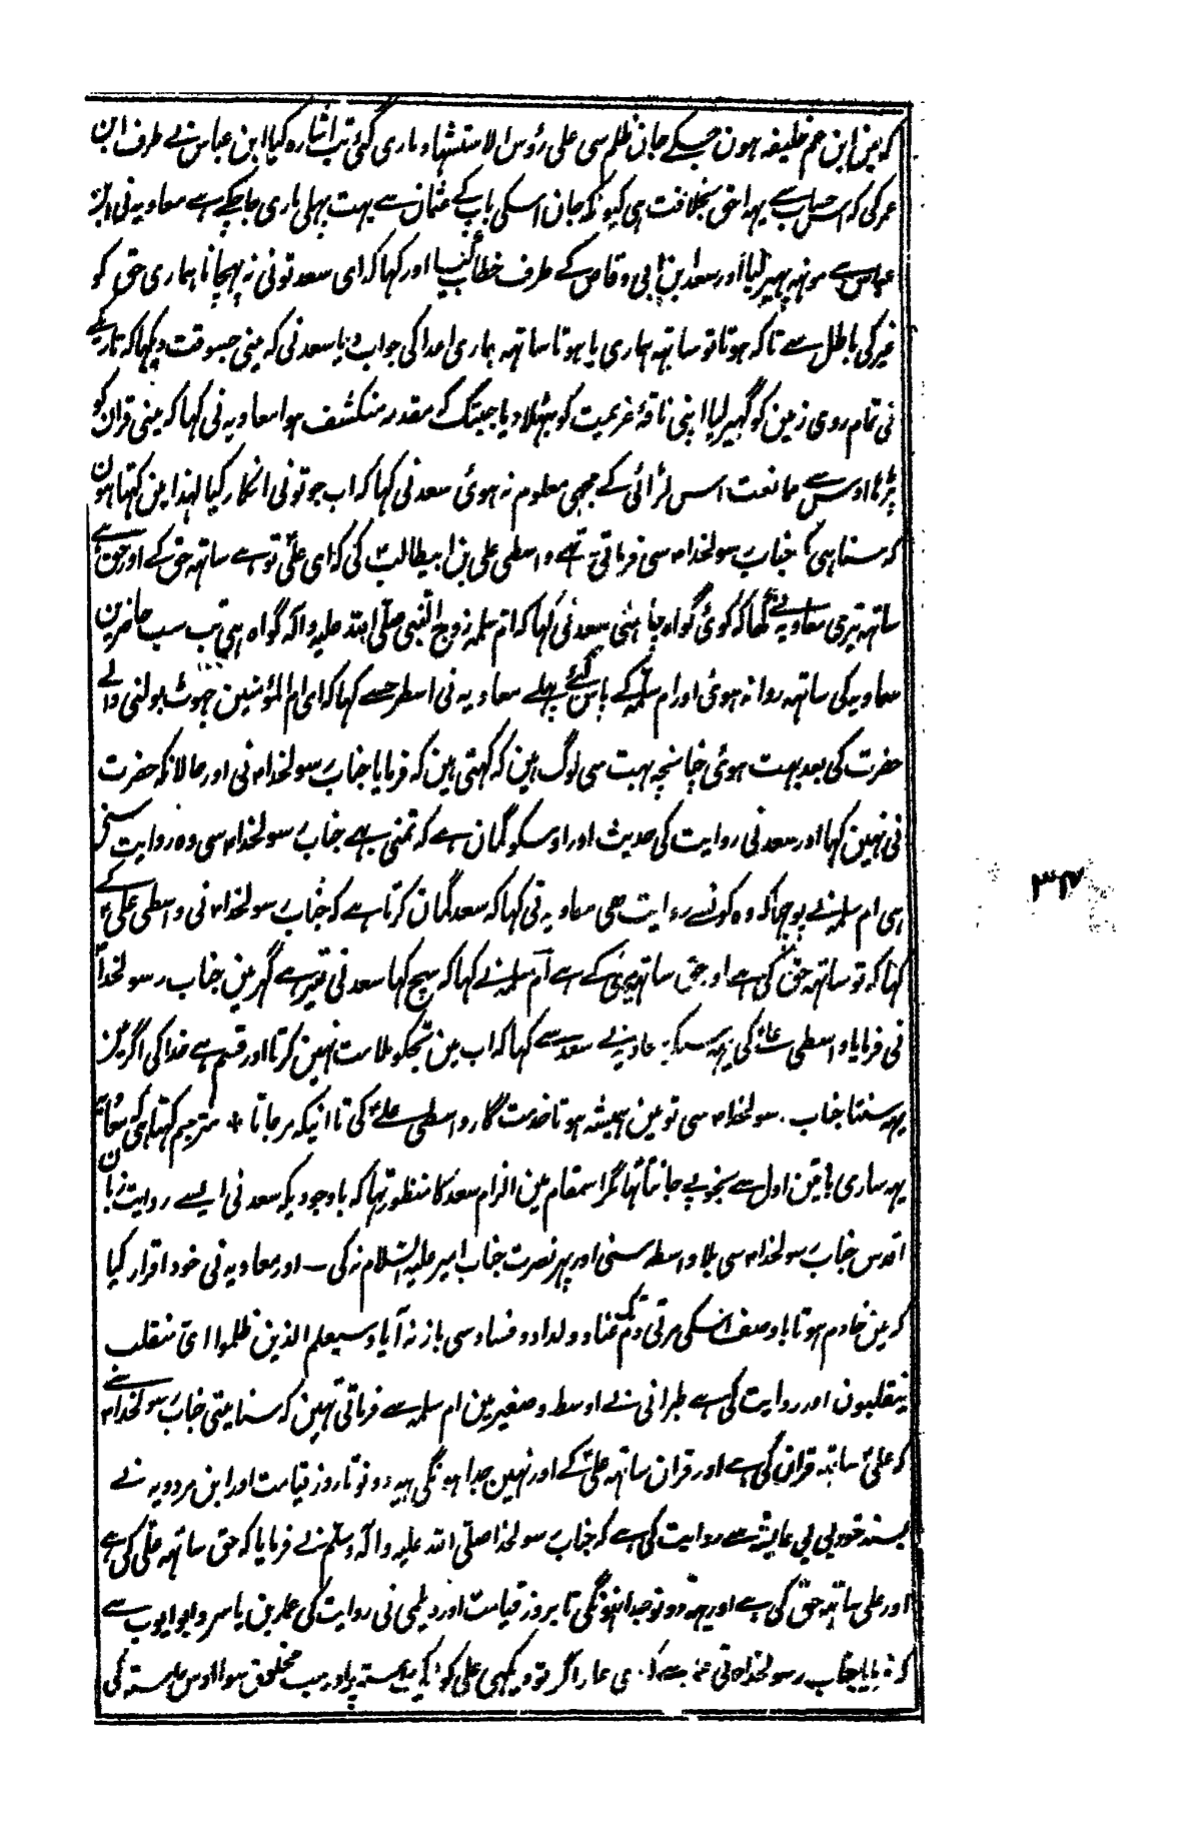 کہ مین ابن عم خلیفہ ہون جسکے جان ظلم سی علی رؤس الاستشہاد ماری گئی تب اشارہ کیا ابن عباس نے طرف ابن
عمر کی کہ اس حساب سے یہہ احق بخلافت ہی کیونکہ جان اسکی باپ کے عثمان سے بہت پہلی ماری جاچکے ہے معاویہ نی ابن
عباس سے مونہہ پہیر لیا اور سعد بن ابی وقاص کے طرف خطاب کیا اور کہا کہ ای سعد تونی نہ پہچانا ہماری حق کو
غیر کی باطل سے تاکہ ہوتا تو ساتہہ ہماری یا ہوتا ساتہہ ہماری اعدا کی جواب دیا سعد نی کہ مینی جسوقت دیکہا کہ تاریکے
نی تمام روی زمین کو گہیر لیا اپنی ناقۂ عزیمت کو بٹہلا دیا جبتک کہ مقدمہ منکشف ہوا معاویہ نی کہا کہ مینی قران کو
پڑہا اوس سے ممانعت اس لڑائی کے مجہی معلوم نہ ہوئی سعد نی کہا کہ اب جو تونی انکار کیا لہذا مین کہتا ہون
کہ سنا ہی جناب رسولخدام سی فرماتی تہے واسطی علی بن ابیطالب کی کہ ای علی تو ہے ساتہہ حق کے اور حق ہے
ساتہہ تیری معاویہ نے کہا کہ کوئی گواہ چاہئی سعد نی کہا کہ ام سلمہ زوج النبی صلی اللہ علیہ وآلہ گواہ ہی تب سب حاضرین
معاویہ کی ساتہہ روانہ ہوئی اور ام سلمہ کے پاس گئے پہلے معاویہ نی اسطرح سے کہا کہ ای ام المؤمنین جہوٹ بولنی والے
حضرت کی بعد بہت ہوئی چنانچہ بہت سی لوگ ہین کہ کہتی ہین کہ فرمایا جناب رسولخدام نی اور حالانکہ حضرت
نی نہین کہا اور سعد نی روایت کی حدیث اور اوسکو گمان ہے کہ تمنی بہے جناب رسولخدام سی وہ روایت سنی
ہی ام سلمہ نے پوچہا کہ وہ کونسے روایت ہی معاویہ نی کہا کہ سعد گمان کرتا ہے کہ جناب رسولخدام نی واسطی علی کے
کہا کہ تو ساتہہ حق کی ہے اور حق ساتہہ تیری کے ہے ام سلمہ نے کہا کہ سچ کہا سعد نی تیرے گہر مین جناب رسولخدا
نی فرمایا واسطی علی کی یہہ سنکر معاویہ نے سعد سے کہا کہ اب مین تجکو ملامت نہین کرتا اور قسم ہے خدا کی اگر مین
یہہ سنتا جناب رسولخدام سی تو مین ہمیشہ ہوتا خدمت گار واسطی علی کی تا اینکہ مرجاتا * مترجم کہتا ہی کہ معاویہ
یہہ ساری باتین اول سے بخوبی جانتا تہا مگر اسمقام مین الزام سعد کا منظور تہا کہ باوجودیکہ سعد نی ایسے روایت زبان
اقدس جناب رسولخدام سی بلا واسطہ سنی اور پہر نصرت جناب امیر علیہ السلام نہ کی – اور معاویہ نی خود اقرار کیا
کہ مین خادم ہوتا باوصف اسکی مرتی دم تک عناد و لداد و فساد سی باز نہ آیا وسیعلم الذین ظلموا ای منقلب
ینقلبون اور روایت کی ہے طبرانی نے اوسط و صغیر مین ام سلمہ سے فرماتی تہین کہ سنا مینی جناب رسولخدام سے
کہ علی ساتہہ قران کی ہے اور قران ساتہہ علی کے اور نہین جدا ہونگی یہہ دونو تا روز قیامت اور ابن مردویہ نے
بسند خود بی بی عایشہ سے روایت کی ہے کہ جناب رسولخدا صلی اللہ علیہ وآلہ وسلم نے فرمایا کہ حق ساتہہ علی کی ہے
اور علی ساتہہ حق کی ہے اور یہہ دونو جدا نہونگی تا بروز قیامت اور دیلمی نی روایت کی عمار بن یاسر و ابو ایوب سے
کہ فرمایا جناب رسولخدام نی عمار سے کہ ای عمار اگر تو دیکہی علی کو کہ ایک رستہ پر اور سب مخلوق سوا اوس رستہ کی